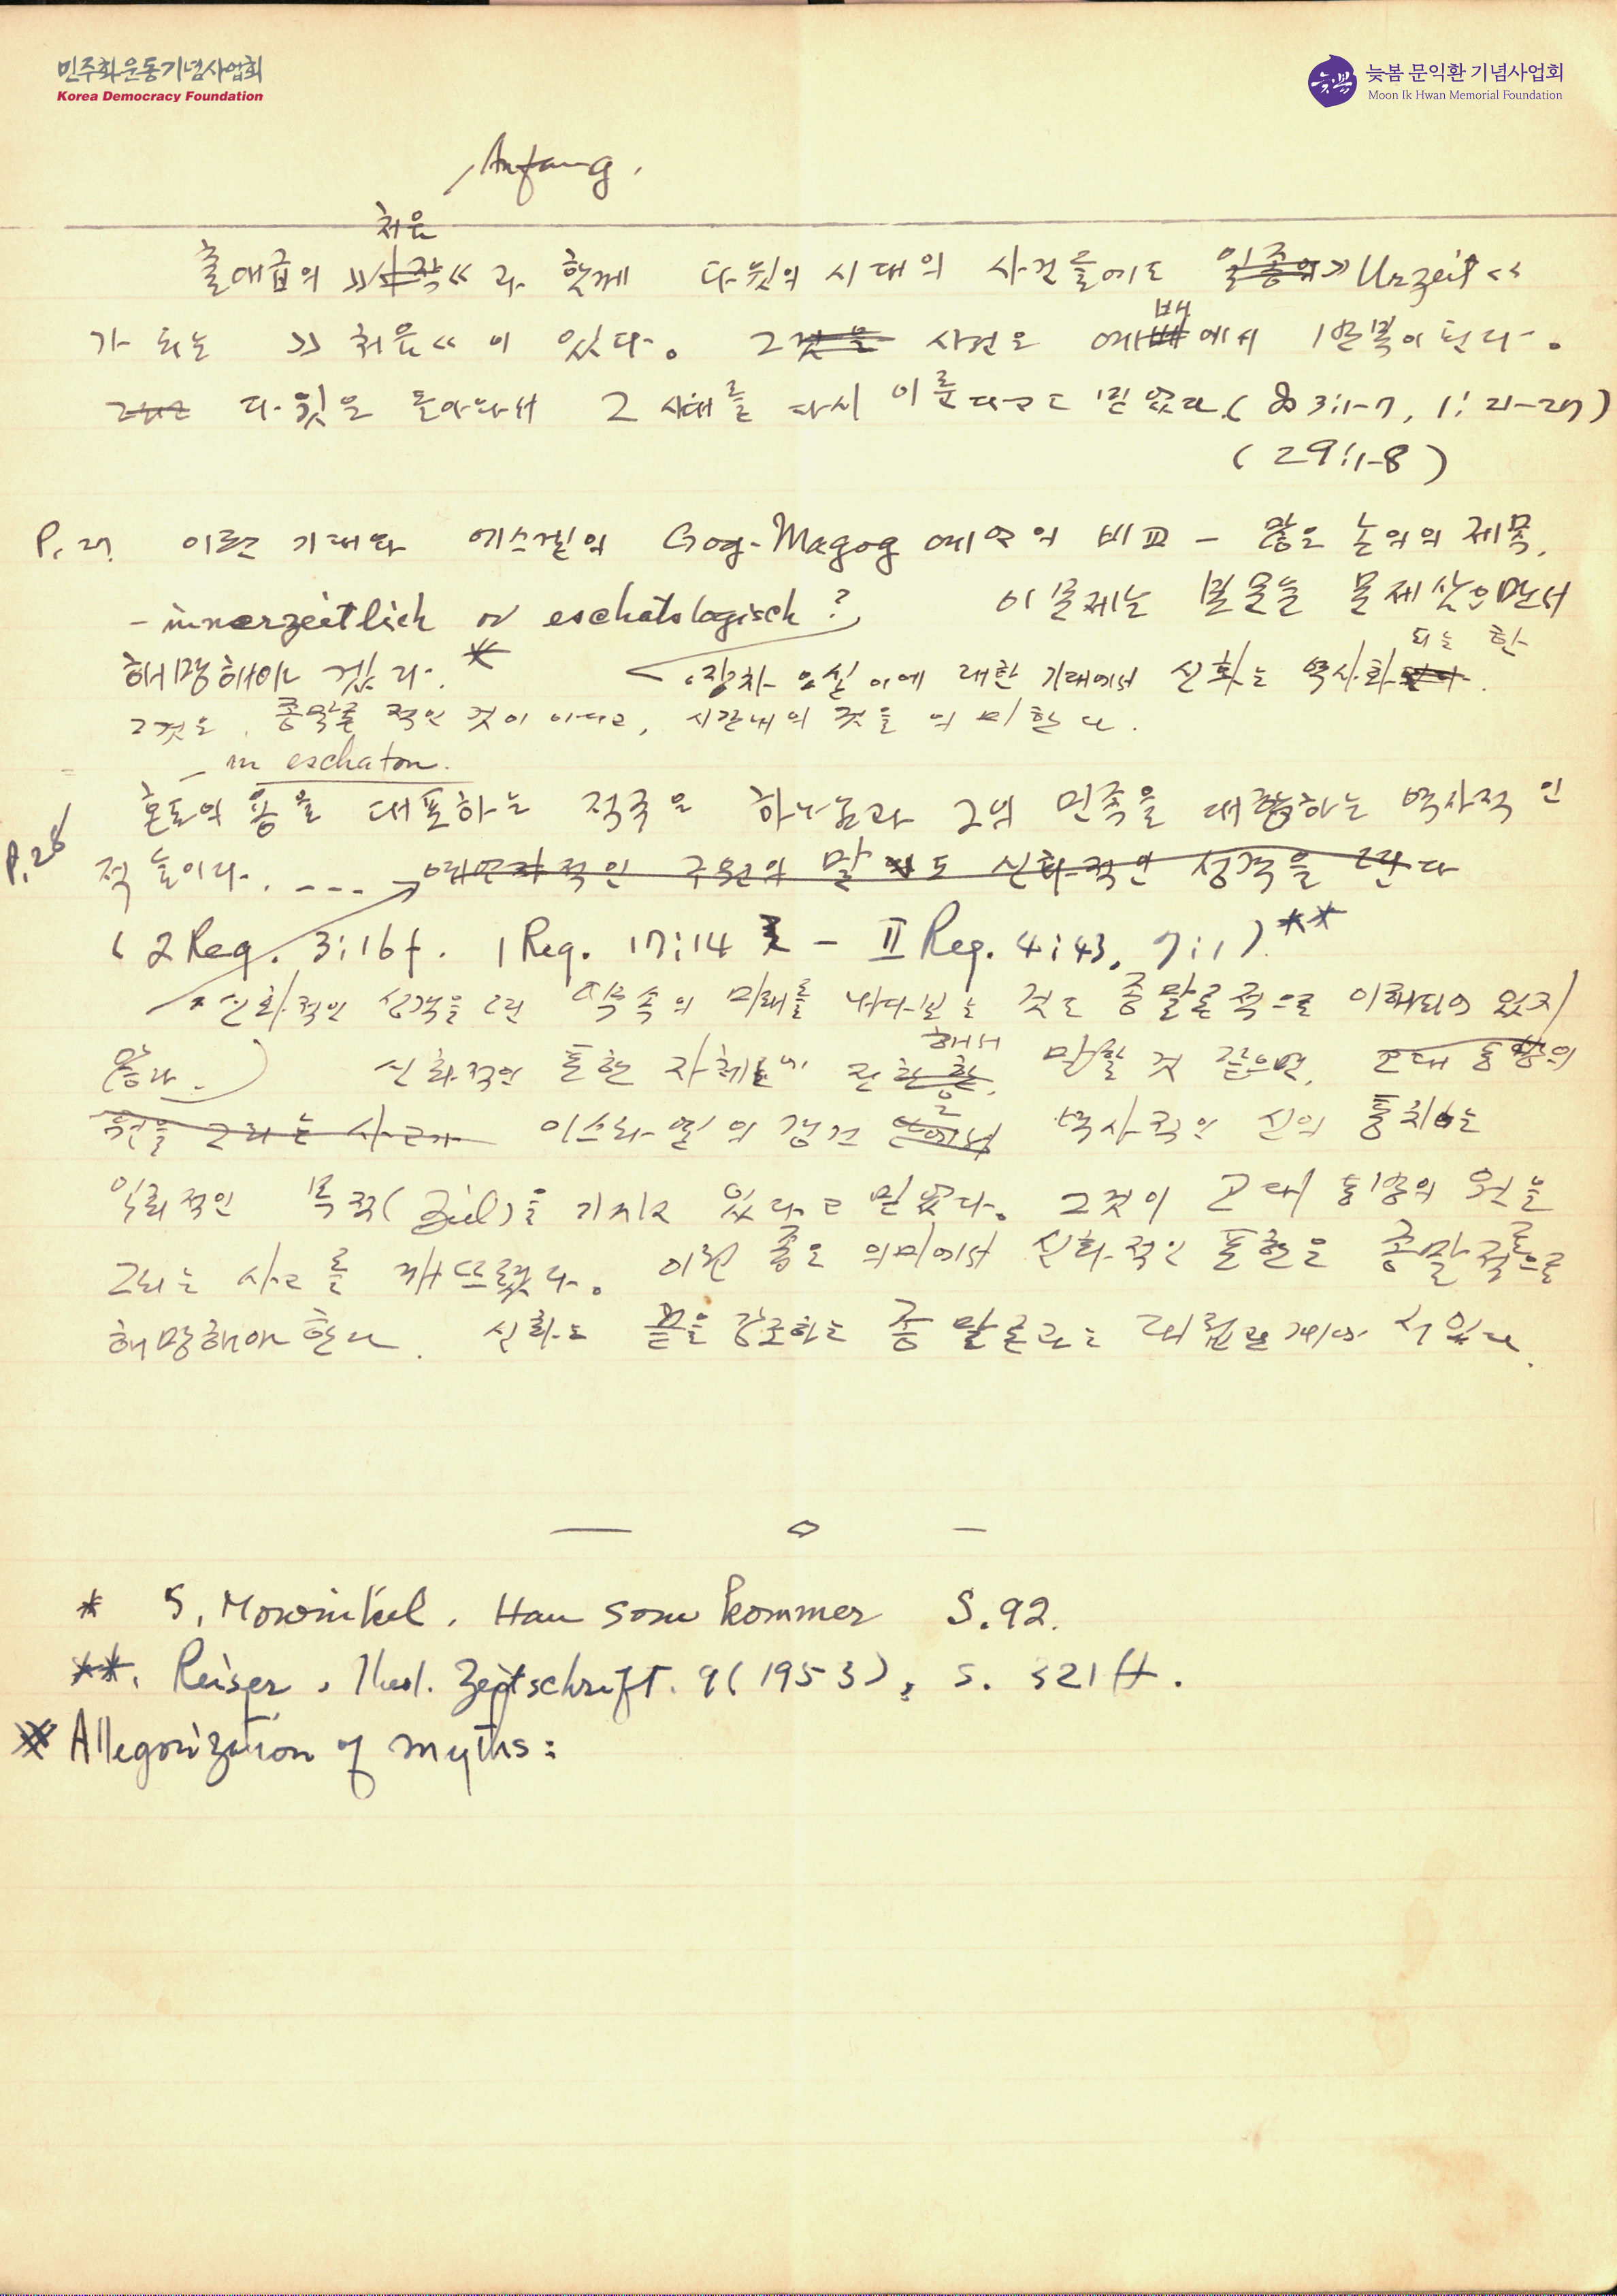 민주화운동기념사업회
Korea Democracy Foundation
늦봄 문익환 기념사업회
Moon Ik Hwan Memorial Foundation
Anfang.
처음
출애급의 »시작« 과 함께 다윗의 시대의 사건들에도 일종의 »Urzeit«
가 되는 »처음« 이 있다. 그것을 사건은 예배에서 반복이 된다.
다윗은 돌아와서 그 시대를 다시 이룬다고도 믿었다. ( 3:1-7, 1:21-27)
(29:1-8)
P. 27. 이런 기대와 에스겔의 Gog-Magog 예언의 비교 - 많은 논의의 제목.
- innerzeitlich or eschatologisch? 이 문제는 본문을 문제삼으면서
해명해야 겠다. *
되는 한
장차 오실 이에 대한 기대에서 신화는 역사화
그것은 종말론적인 것이 아니고, 시간내의 것을 의미한다.
- in eschaton.
혼돈의 용을 대표하는 적국은 하나님과 그의 민족을 대항하는 역사적인
P. 28
적들이다. ---- 예언자적인 구원의 말도 신화적인 성격을 띤다
(2 Reg. 3:16f. 1 Reg. 17:14 - II Reg. 4:43, 7:1) **
신화적인 성격을 띤 약속의 미래를 내다보는 것도 종말론적으로 이해되어 있지
않다.) 신화적인 표현 자체 해서 말할 것 같으면, 고대 동방의
원을 그리는 사고가 이스라엘의 경건은 역사적인 신의 통치는
목적(Ziel)을 가지고 있다고 믿었다. 그것이 고대 동방의 원을
그리는 사고를 깨뜨렸다. 이런 좁은 의미에서 신화적인 표현은 종말론적으로
해명해야 한다. 신화는 끝을 강조하는 종말론과는 대립관계에 서있다.
— o —
* S. Mowinckel. Han som kommer S. 92.
**. Reiser, Theol. Zeitschrift. 9 (1953), S. 321 ff.
※ Allegorization of myths: